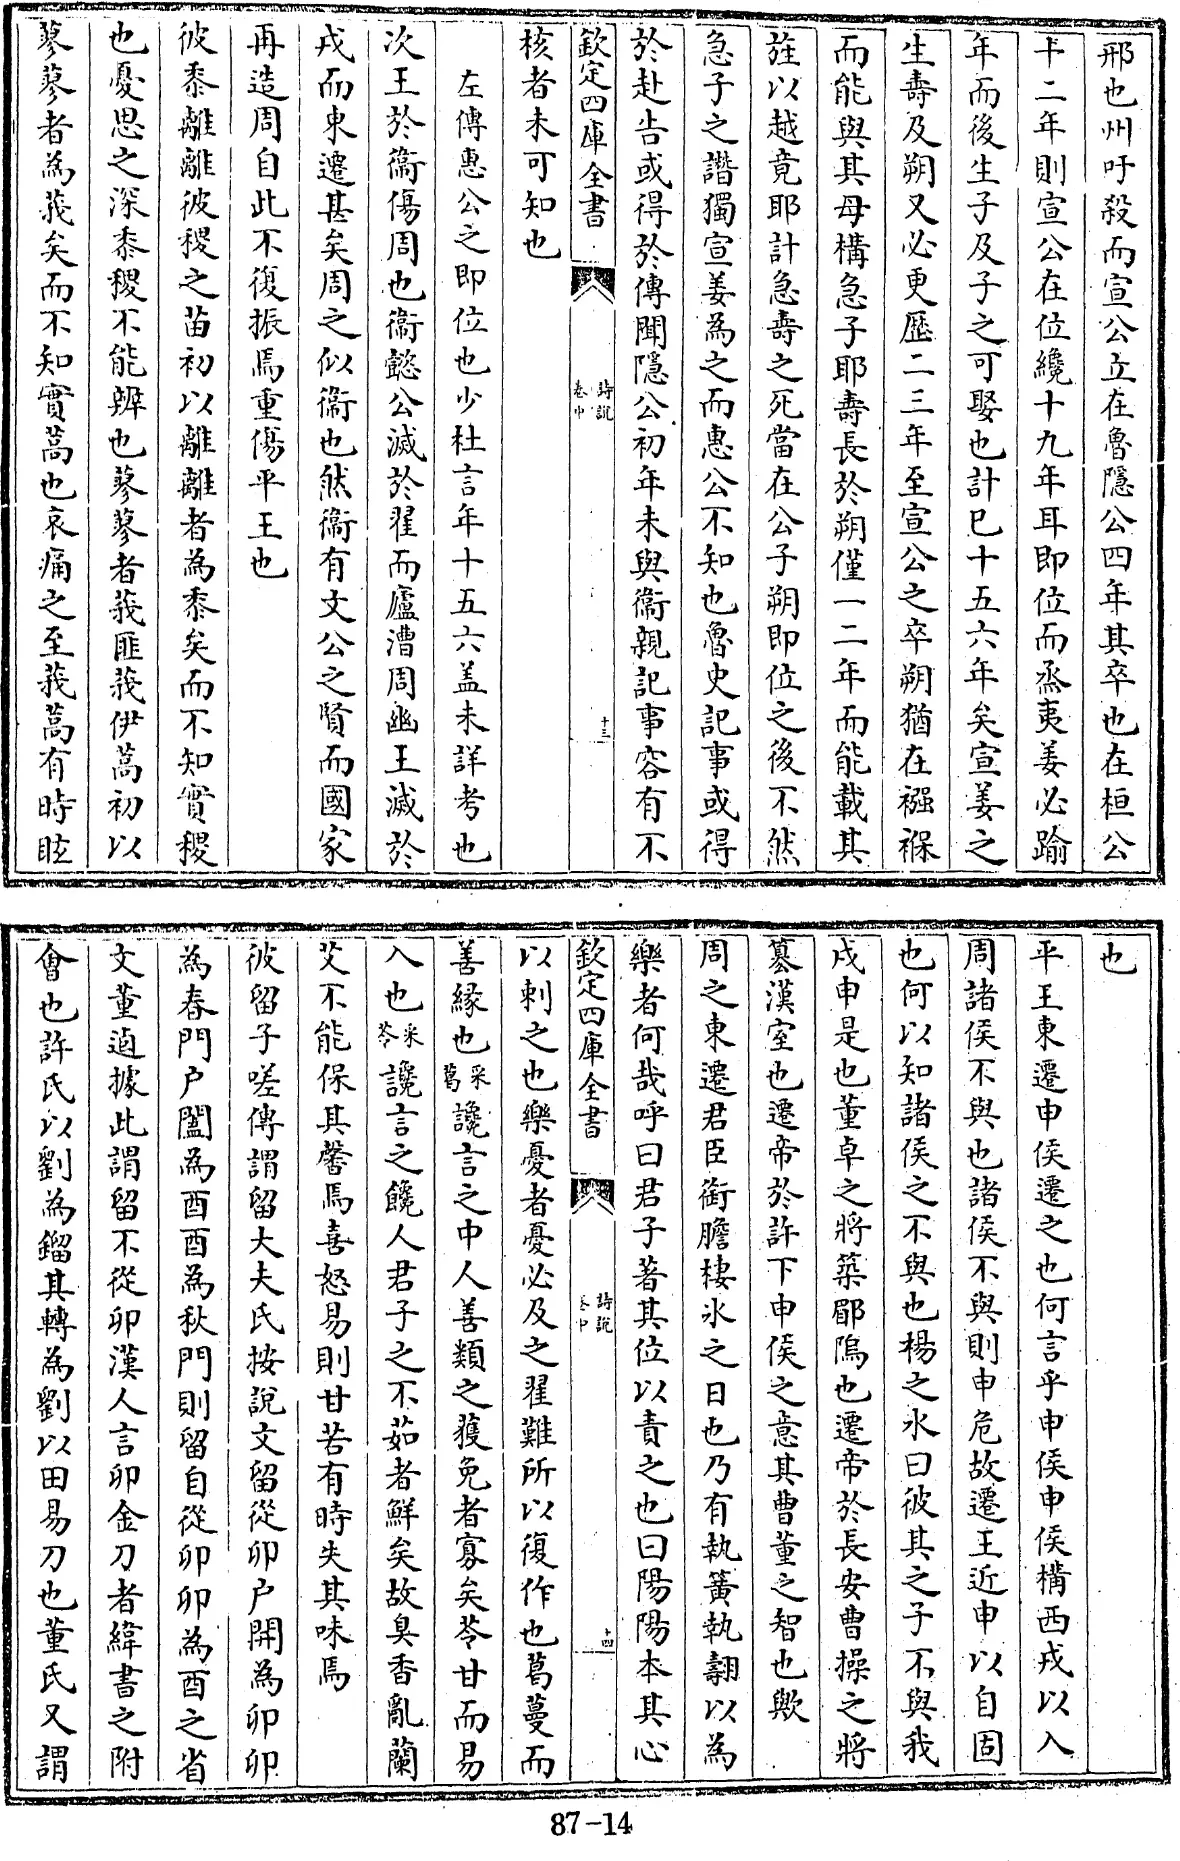 邢也州吁殺而宣公立在魯隱公四年其卒也在桓公
十二年則宣公在位纔十九年耳即位而烝夷姜必踰
年而後生子及子之可娶也計已十五六年矣宣姜之
生壽及朔又必更歷二三年至宣公之卒朔猶在襁褓
而能與其母構急子耶壽長於朔僅一二年而能載其
旌以越竟耶計急壽之死當在公子朔即位之後不然
急子之譖獨宣姜為之而惠公不知也魯史記事或得
於赴告或得於傳聞隱公初年未與衞親記事容有不
欽定四庫全書 詩說 卷中 十三
核者未可知也
左傳惠公之即位也少杜言年十五六盖未詳考也
次王於衞傷周也衞懿公滅於翟而廬漕周幽王滅於
戎而東遷甚矣周之似衞也然衞有文公之賢而國家
再造周自此不復振焉重傷平王也
彼黍離離彼稷之苗初以離離者為黍矣而不知實稷
也憂思之深黍稷不能辨也蓼蓼者莪匪莪伊蒿初以
蓼蓼者為莪矣而不知實蒿也哀痛之至莪蒿有時眩
也
平王東遷申侯遷之也何言乎申侯申侯構西戎以入
周諸侯不與也諸侯不與則申危故遷王近申以自固
也何以知諸侯之不與也楊之水曰彼其之子不與我
戍申是也董卓之將築郿隖也遷帝於長安曹操之將
簒漢室也遷帝於許下申侯之意其曹董之智也歟
周之東遷君臣銜膽棲氷之日也乃有執簧執翿以為
樂者何哉呼曰君子著其位以責之也曰陽陽本其心
欽定四庫全書 詩說 卷中 十四
以刺之也樂憂者憂必及之翟難所以復作也葛蔓而
善緣也采葛讒言之中人善類之獲免者寡矣苓甘而易
入也采苓讒言之饞人君子之不茹者鮮矣故臭香亂蘭
艾不能保其馨焉喜怒易則甘苦有時失其味焉
彼留子嗟傳謂留大夫氏按說文留從丣戶開為卯丣
為春門戶闔為酉酉為秋門則留自從丣丣為酉之省
文董逌據此謂留不從卯漢人言卯金刀者緯書之附
會也許氏以劉為鎦其轉為劉以田易刀也董氏又謂
87-14